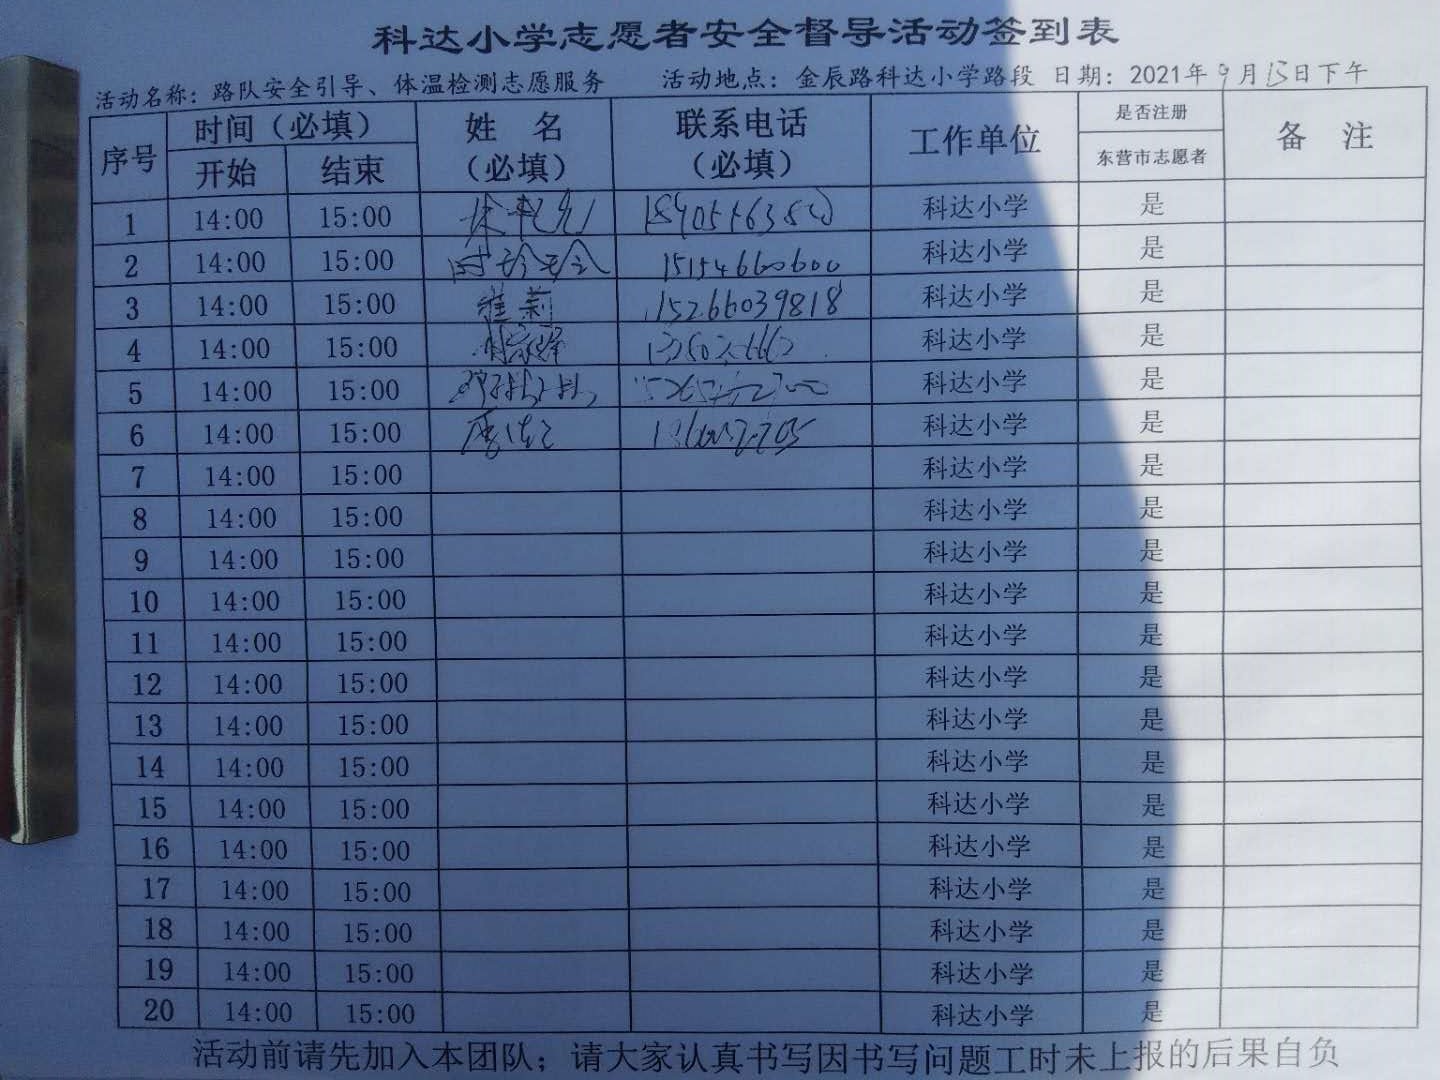 科达小学志愿者安全督导活动签到表
活动名称：路队安全引导、体温检测志愿服务 活动地点：金辰路科达小学路段 日期：2021年9月15日下午
序号 时间（必填） 姓 名 联系电话 工作单位 是否注册 备 注
开始 结束 （必填） （必填） 东营市志愿者
1 14:00 15:00 科达小学 是
2 14:00 15:00 15154660600 科达小学 是
3 14:00 15:00 莉 15266039818 科达小学 是
4 14:00 15:00 科达小学 是
5 14:00 15:00 科达小学 是
6 14:00 15:00 科达小学 是
7 14:00 15:00 科达小学 是
8 14:00 15:00 科达小学 是
9 14:00 15:00 科达小学 是
10 14:00 15:00 科达小学 是
11 14:00 15:00 科达小学 是
12 14:00 15:00 科达小学 是
13 14:00 15:00 科达小学 是
14 14:00 15:00 科达小学 是
15 14:00 15:00 科达小学 是
16 14:00 15:00 科达小学 是
17 14:00 15:00 科达小学 是
18 14:00 15:00 科达小学 是
19 14:00 15:00 科达小学 是
20 14:00 15:00 科达小学 是
活动前请先加入本团队；请大家认真书写因书写问题工时未上报的后果自负